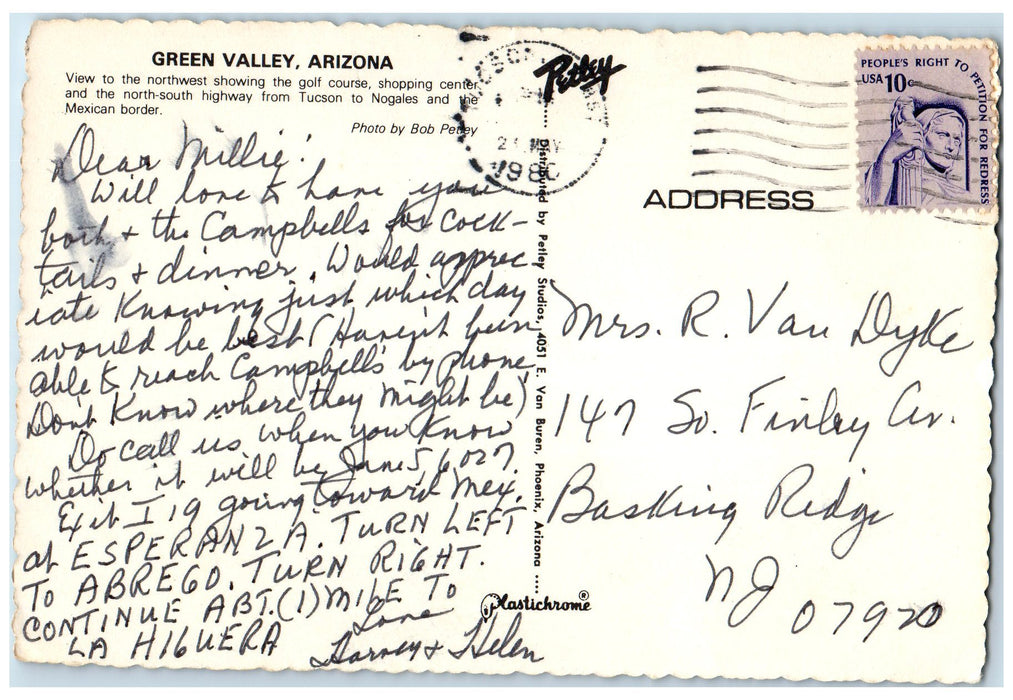 GREEN VALLEY, ARIZONA
View to the northwest showing the golf course, shopping center
and the north-south highway from Tucson to Nogales and the
Mexican border.
Photo by Bob Petley
Dear Millie!
Will love to have you
both + the Campbells for cock-
tails + dinner. Would apprec-
iate knowing just which day
would be best (Haven't been
able to reach Campbells by phone
Don't know where they might be)
Do call us when you know
whether it will be June 5, 6 or 7.
Exit I 19 going toward Mex.
at ESPERANZA. TURN LEFT
TO ABREGO. TURN RIGHT.
CONTINUE ABT. (1) MILE TO
LA HIGUERA
Love
Harvey + Helen
Petley
Distributed by Petley Studios, 4051 E. Van Buren, Phoenix, Arizona
Plastichrome®
21 MAY
1980
PEOPLE'S RIGHT TO PETITION FOR REDRESS
USA 10c
ADDRESS
Mrs. R. Van Dyke
147 So. Finley Av.
Basking Ridge
NJ 07920